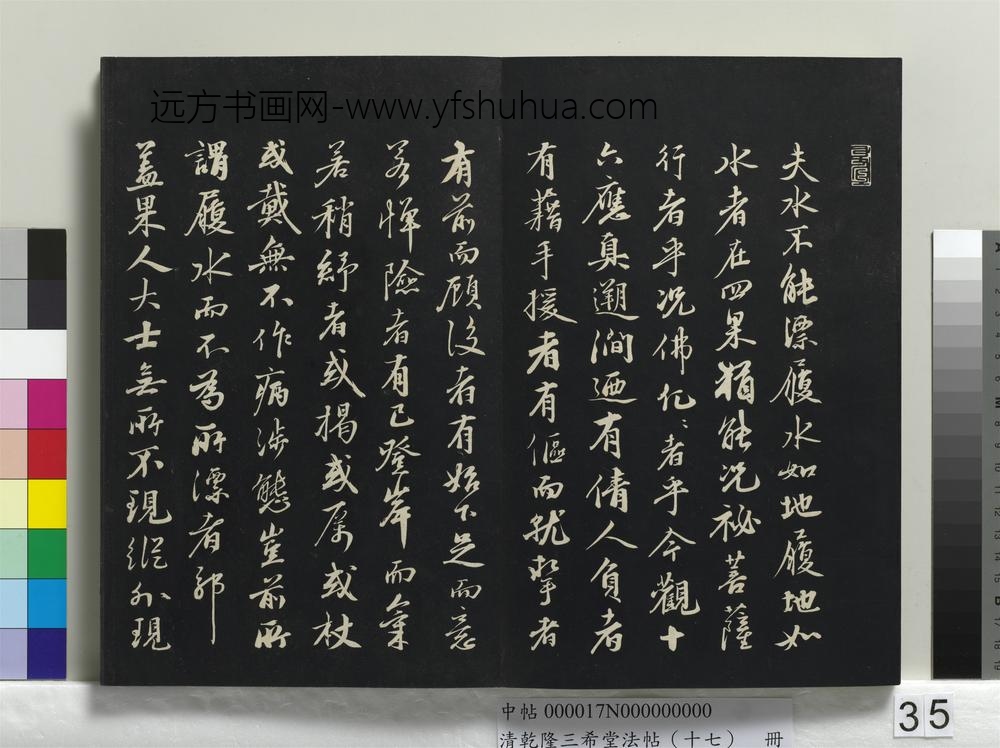 远方书画网-www.yfshuhua.com
夫水不能漂履水如地履地如
水者在四果猶能况秘菩薩
行者乎况佛化〻者乎今觀十
六應真遡澗迺有倩人負者
有藉手援者有傴而就掔者
有前而顧後者有始下足而意
若憚險者有已登岸而氣
若稍紓者或揭或厲或杖
或戴無不作病涉態豈前所
謂履水而不為所漂者耶
蓋果人大士無所不現縱外現
中帖 000017N000000000
清乾隆三希堂法帖（十七） 冊
35